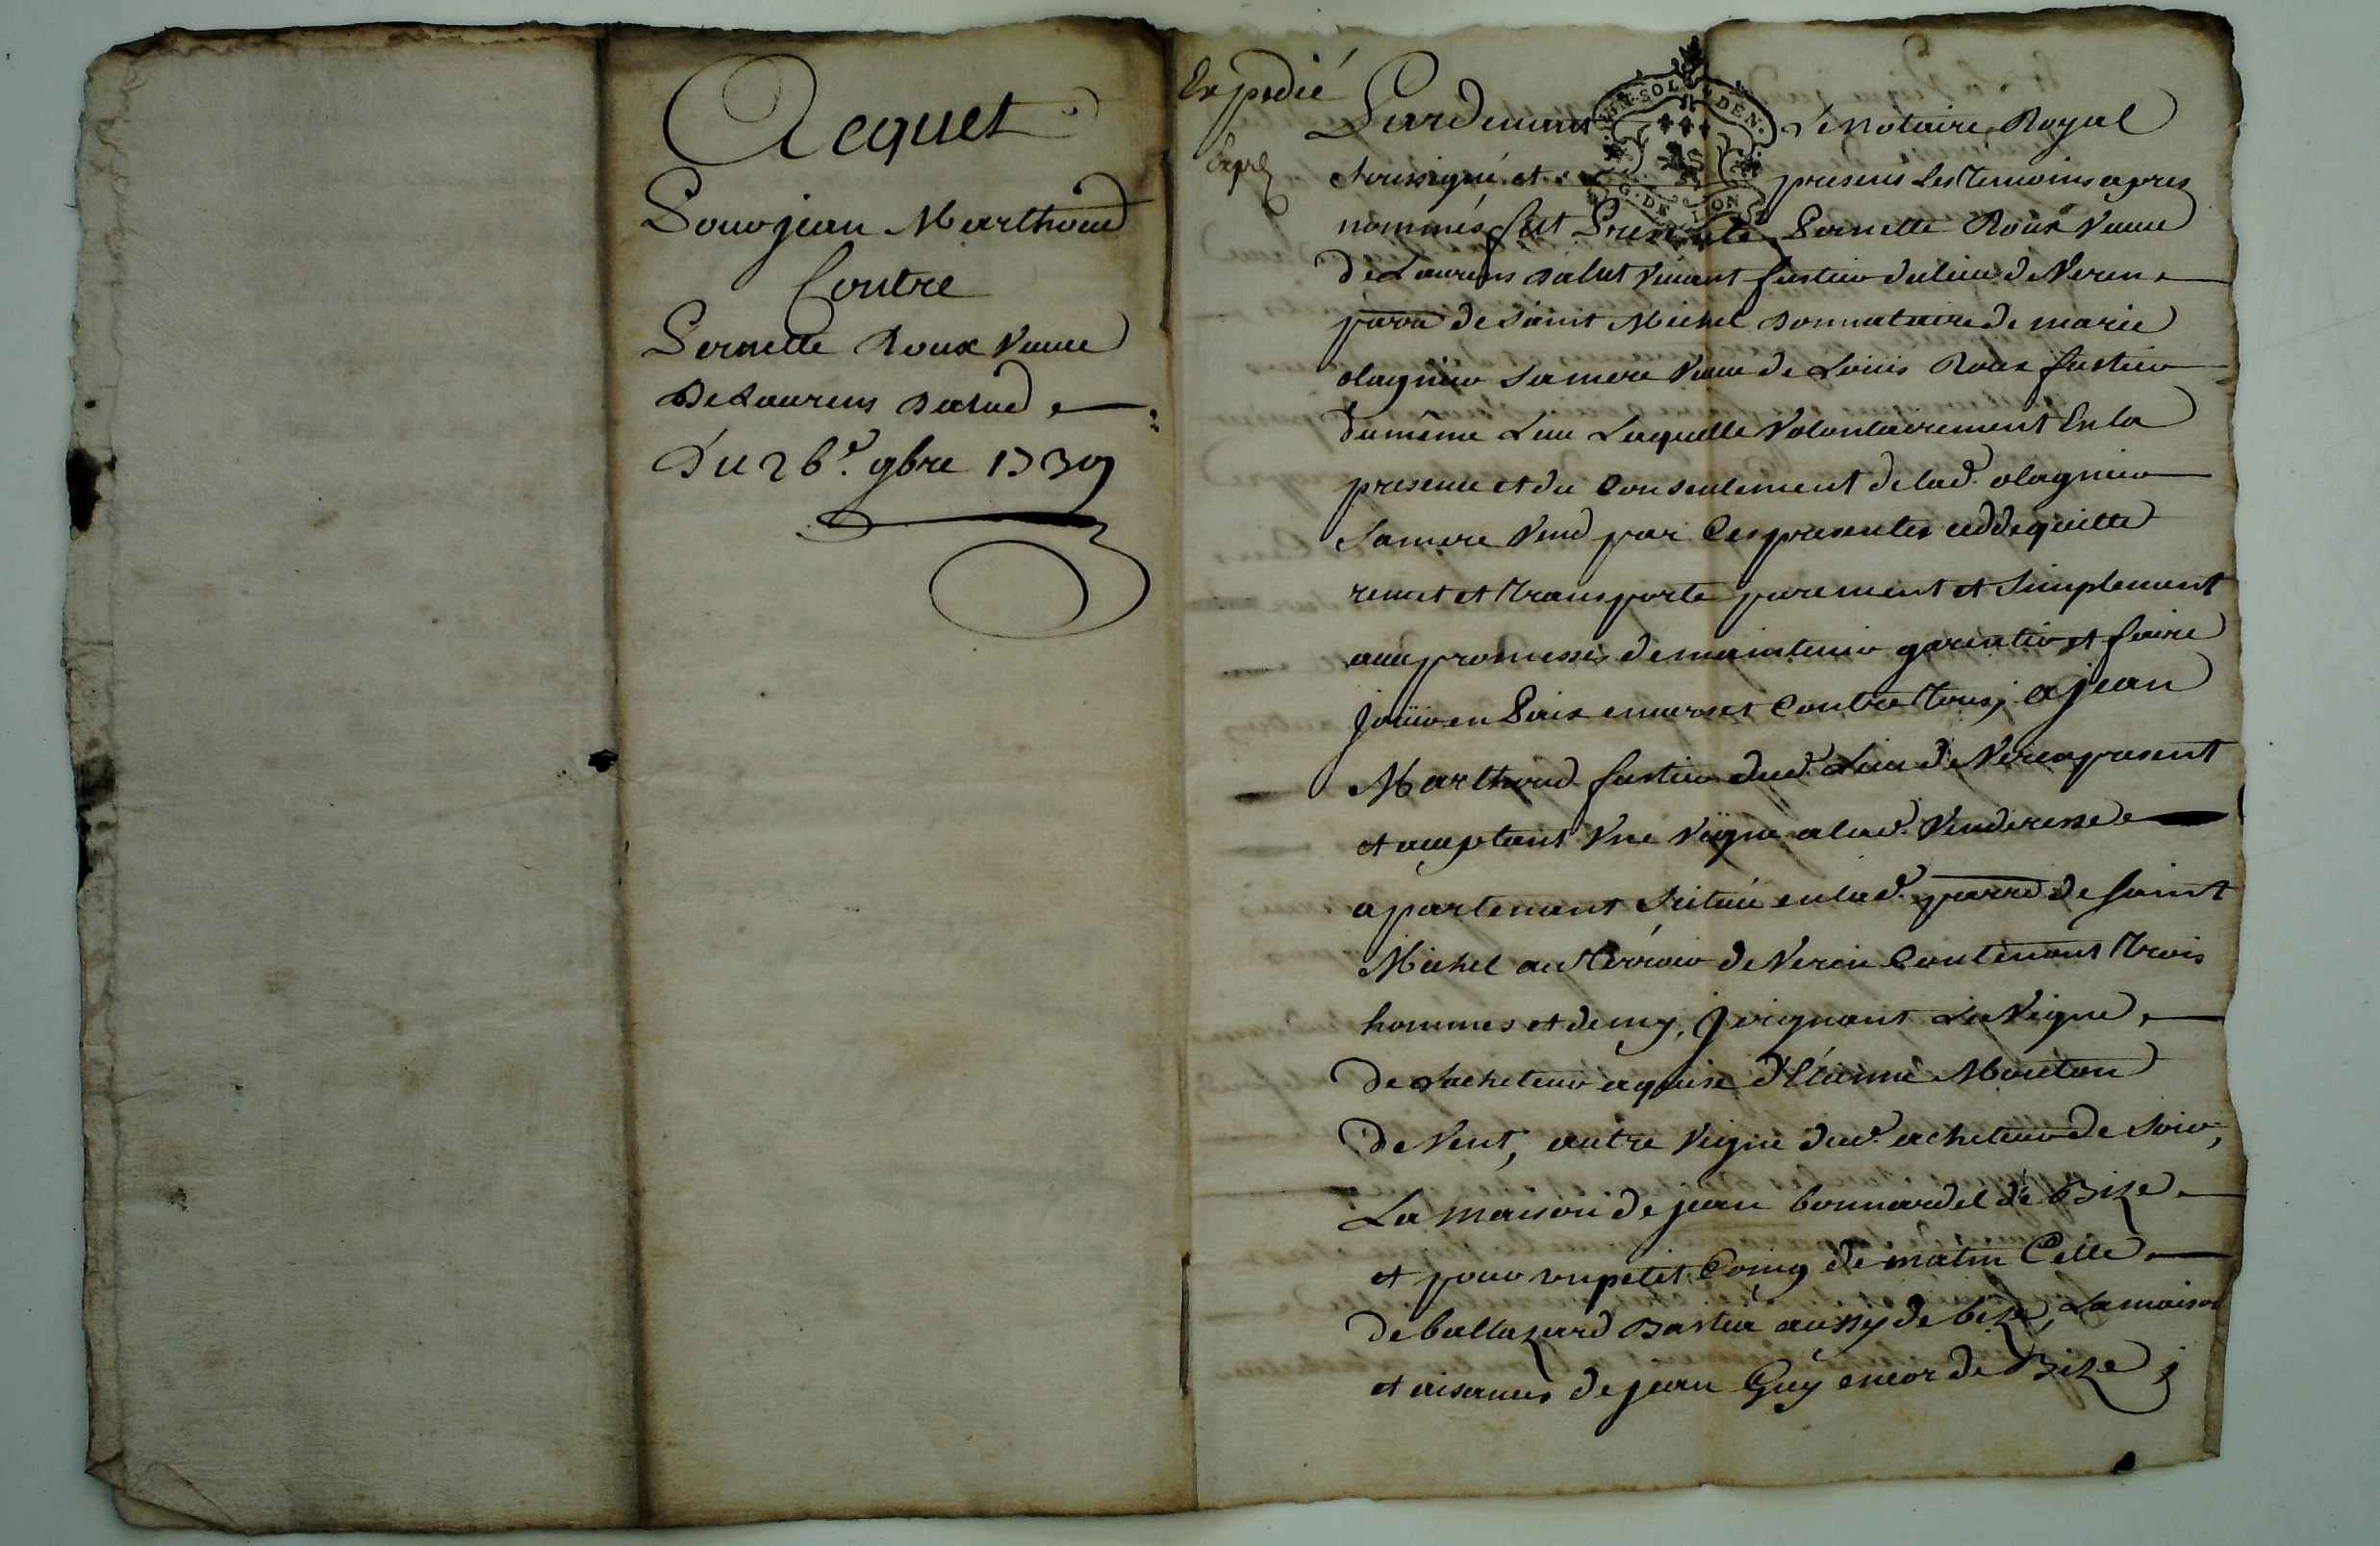 Acquet
Pour jean Marthoud
Contre
Pernette Roux Veuve
De Laurens Salud
Du 26e. 9bre 1739
Expedié
Expé
Pardevant le Notaire Royal
HUIT SOLS 4 DEN.
G. DE LION
soussigné et presens les temoins apres
nommés fut Presente Pernette Roux Veuve
de Laurens Salut vivant fustier du lieu de Verin
parre de Saint Michel donnataire de marie
olagnier sa mere veuve de Loüis Roux fustier
du même Lieu Laquelle volontairement En la
presence et du Consentement de lad. olagnier
sa mere vend par Ces presentes cedde quitte
remet et transporte purement et simplement
avec promesses de maintenir garentir et faire
joüir en Paix envers et Contre tous, a jean
Marthoud fustier dud. Lieu de Verin present
et acceptant Vne Vigne a lad. Venderesse
apartenant Scituée en lad. parre de saint
Michel au terroir de Verin Contenant trois
hommes et demy, joignant La Vigne
de Lacheteur aquise d'Etienne Mouton
de Vent, autre Vigne dud. acheteur de soir,
La maison de jean bonnardel de Bize
et pour un petit Coing de matin Celle
de baltazard Bastia aussy de bize, La maison
et aisances de jean Guy encor de Bize,